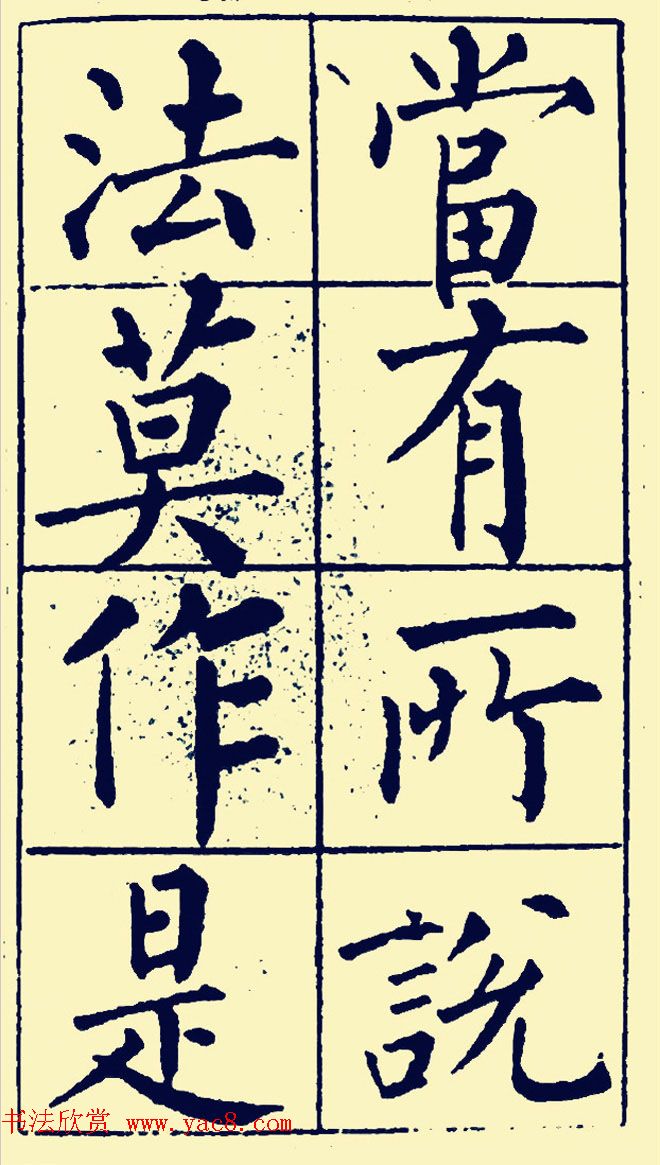 當有所說
法莫作是
书法欣赏 www.yac8.com